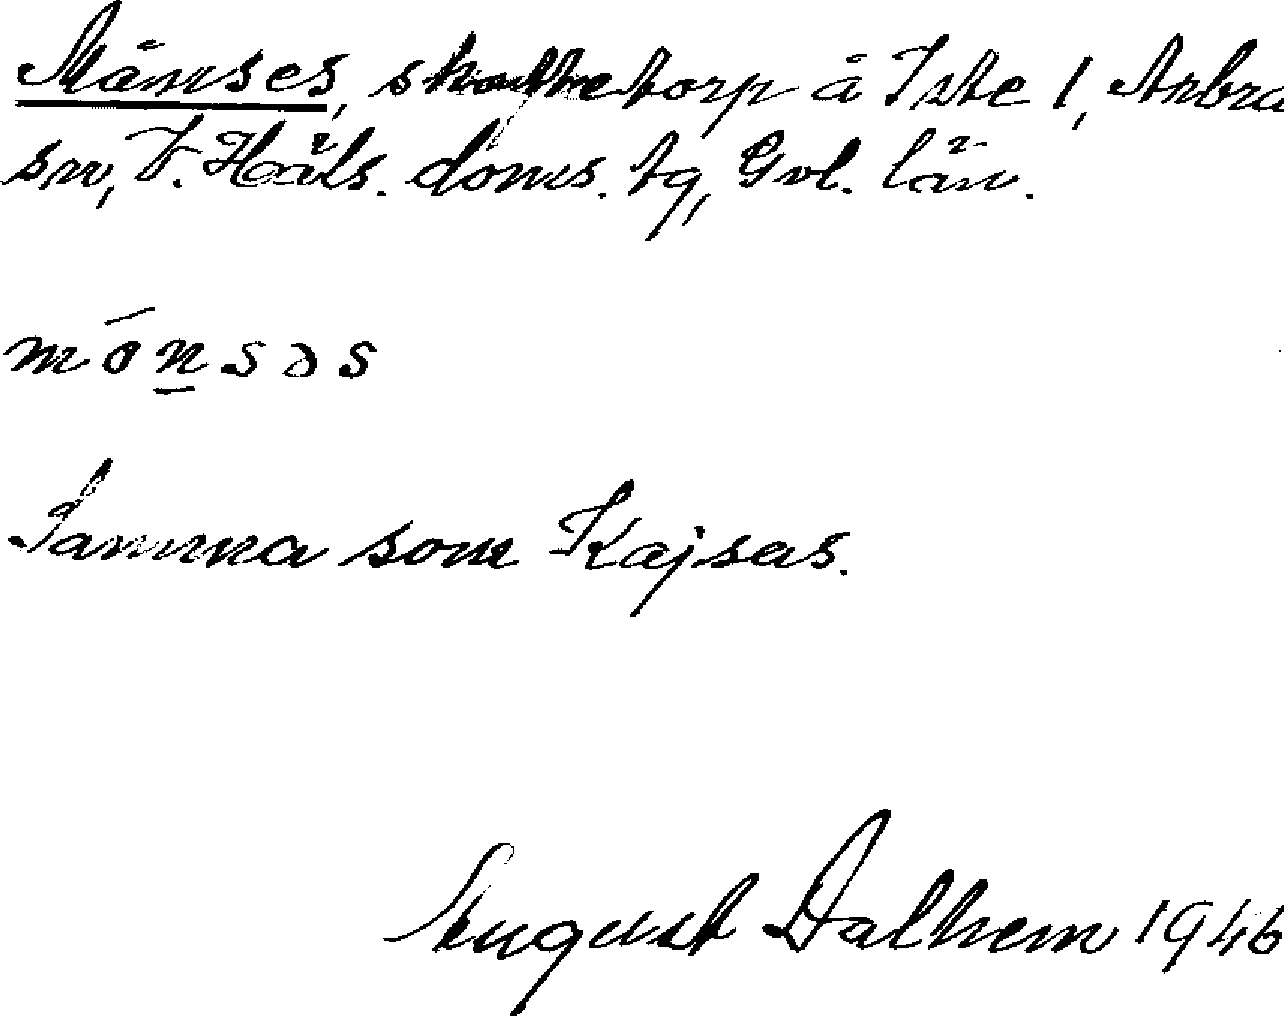 Månses, skattetorp å Iste 1, Arbra
sn, V. Häls. doms. tg, Gvl. län.
m ó n s ə s
Samma som Kajsas.
August Dalhem 1946